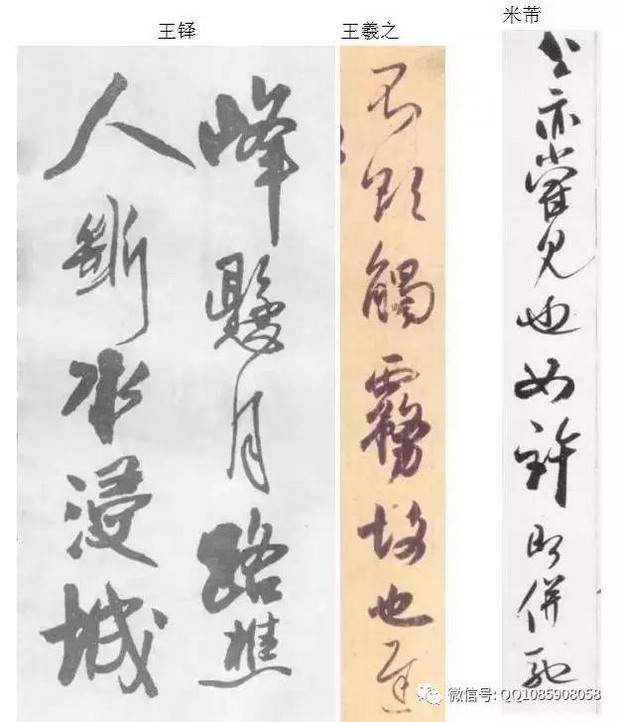 王铎
峰懸月路樵
人斷水浸城
王羲之
頃觸霧故也遲
米芾
公亦嘗見也如許即併馳
微信号: QQ1085908058